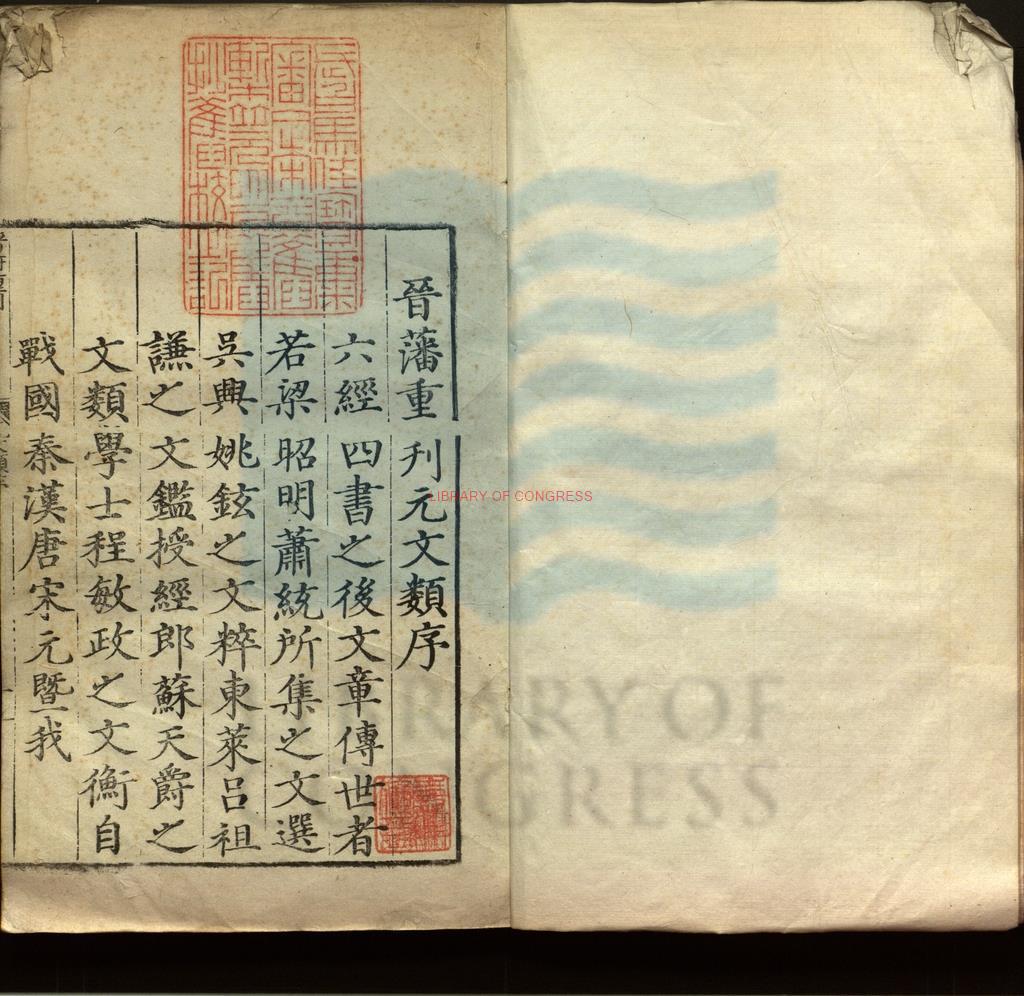 晉藩重刋元文類序
六經四書之後文章傳世者
若梁昭明蕭統所集之文選
吳興姚鉉之文粹東萊呂祖
謙之文鑑授經郎蘇天爵之
文類學士程敏政之文衡自
戰國秦漢唐宋元暨我
LIBRARY OF CONGRESS
LIBRARY OF
CONGRESS